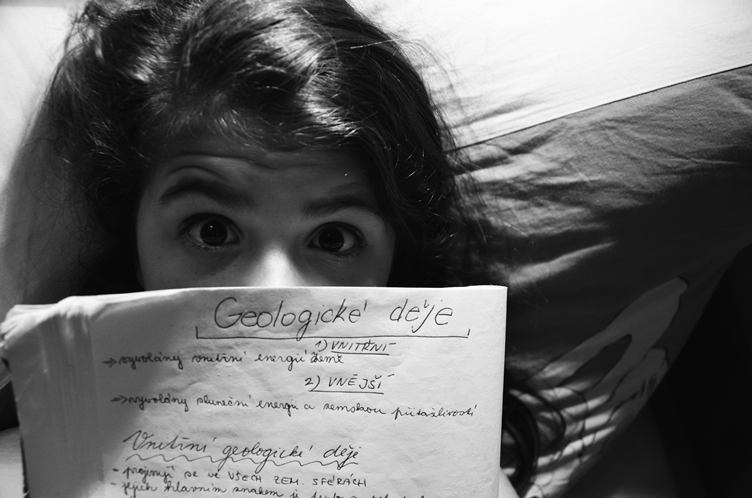 Geologické děje
1) VNITŘNÍ
→ vyvolány vnitřní energií Země
2) VNĚJŠÍ
→ vyvolány sluneční energií a zemskou přitažlivostí
Vnitřní geologické děje
- projevují se ve VŠECH ZEM. SFÉRÁCH
- jejich hlavním znakem je